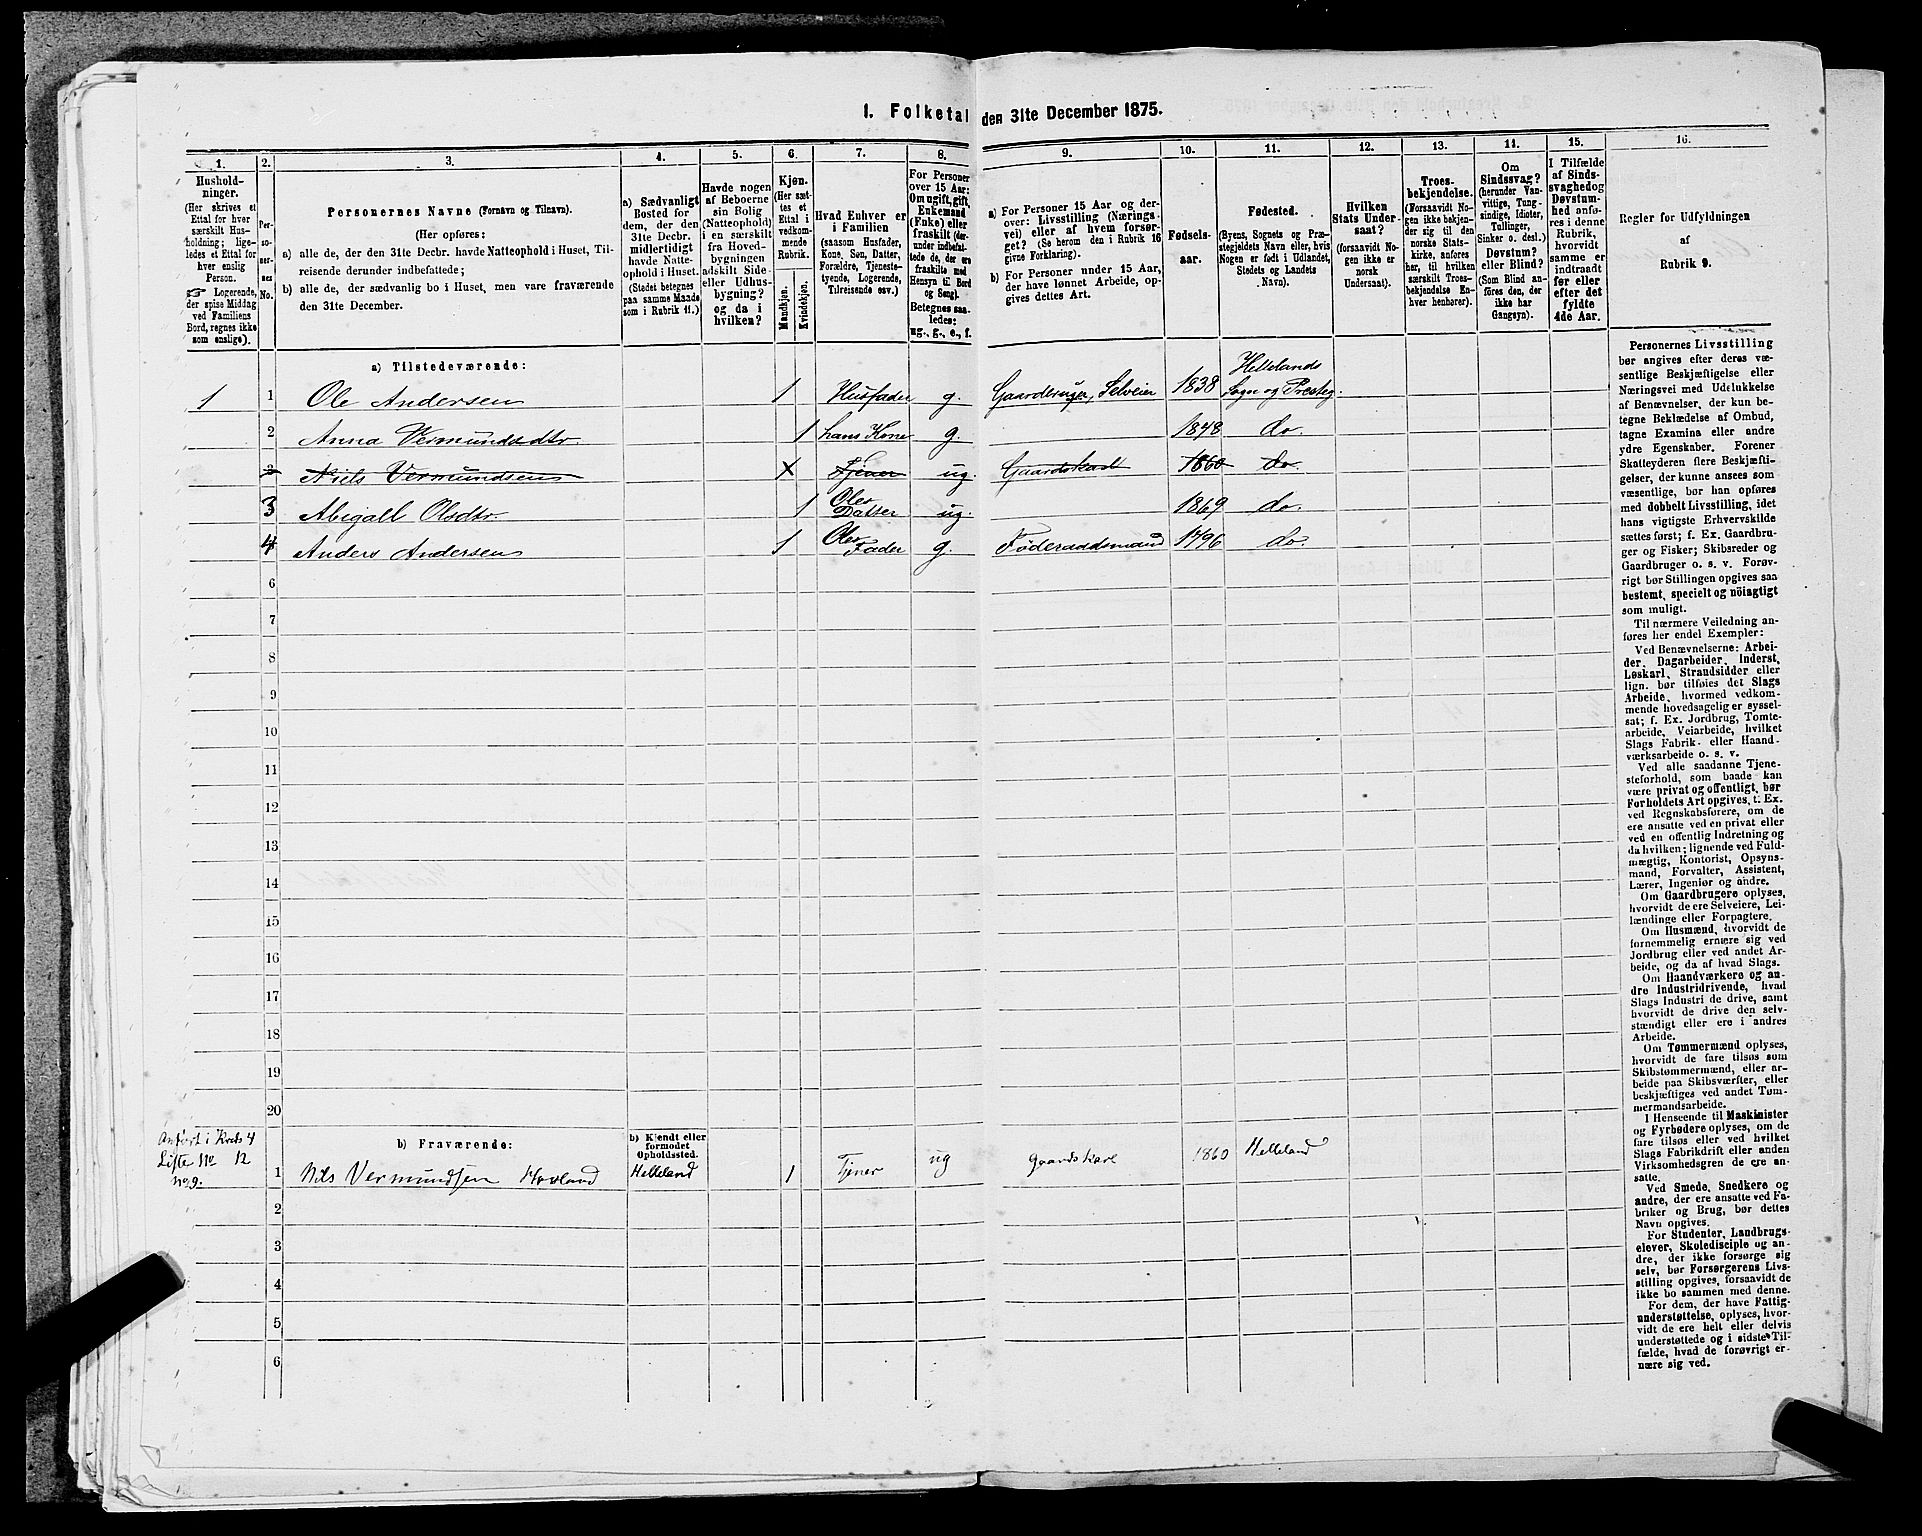 1. Folketal den 31te December 1875.
1.
2.
3.
4.
5.
6.
7.
8.
9.
10.
11.
12.
13.
14.
15.
16.
Hushold-
ninger.
(Her skrives et
Ettal for hver
særskilt Hus-
holdning; lige-
ledes et Ettal for
hver enslig
Person.
☞ Logerende,
der spise Middag
ved Familiens
Bord, regnes ikke
som enslige).
Per-
so-
ner-
nes
No.
Personernes Navne (Fornavn og Tilnavn).
(Her opføres:
a) alle de, der den 31te Decbr. havde Natteophold i Huset, Til-
reisende derunder indbefattede;
b) alle de, der sædvanlig bo i Huset, men vare fraværende
den 31te December.
a) Sædvanligt
Bosted for
dem, der den
31te Decbr.
midlertidigt
havde Natte-
ophold i Huset.
(Stedet betegnes
paa samme Maade
som i Rubrik 11.)
Havde nogen
af Beboerne
sin Bolig
(Natteophold)
i en særskilt
fra Hoved-
bygningen
adskilt Side-
eller Udhus-
bygning?
og da i
hvilken?
Kjøn.
(Her sæt-
tes et
Ettal i
vedkom-
mende
Rubrik.
Mandkjøn.
Kvindekjøn.
Hvad Enhver er
i Familien
(saasom Husfader,
Kone, Søn, Datter,
Forældre, Tjeneste-
tyende, Logerende,
Tilreisende osv.)
For Personer
over 15 Aar:
Om ugift, gift,
Enkemand
(Enke) eller
fraskilt (der-
under indbefat-
tede de, der ere
fraskilte med
Hensyn til Bord
og Seng).
Betegnes saa-
ledes:
ug., g., e., f.
a) For Personer 15 Aar og der-
over: Livsstilling (Nærings-
vei) eller af hvem forsør-
get? (Se herom den i Rubrik 16
givne Forklaring).
b) For Personer under 15 Aar,
der have lønnet Arbeide, op-
gives dettes Art.
Fødsels-
aar.
Fødested.
(Byens, Sognets og Præ-
stegjeldets Navn eller, hvis
Nogen er født i Udlandet,
Stedets og Landets
Navn).
Hvilken
Stats Under-
saat?
(forsaavidt No-
gen ikke er
norsk
Undersaat).
Troes-
bekjendelse.
(Forsaavidt No-
gen ikke bekjen-
der sig til den
norske Stats-
kirke, anføres
her, til hvilken
særskilt Troes-
bekjendelse En-
hver henhører).
Om
Sindssvag?
(herunder Van-
vittige, Tung-
sindige, Idioter,
Tullinger,
Sinker o. desl.)
Døvstum?
eller Blind?
(Som Blind an-
føres den, der
ikke har
Gangsyn).
I Tilfælde
af Sinds-
svaghed og
Døvstum-
hed anfø-
res i denne
Rubrik,
hvorvidt
samme er
indtraadt
før eller
efter det
fyldte
4de Aar.
Regler for Udfyldningen
af
Rubrik 9.
a) Tilstedeværende:
1 1 Ole Andersen 1 Husfader g. Gaardbruger, Selveier 1838 Hellelands Sogn og Presteg.
2 Anna Vermundsdtr. 1 hans Kone g. 1848 do.
3 Niels Vermundsen X Tjener ug. Gaardskarl 1860 do.
3 Abigall Olsdtr. 1 Oles Datter ug. 1869 do.
4 Anders Andersen 1 Oles Fader g. Føderaadsmand 1796 do.
6
7
8
9
10
11
12
13
14
15
16
17
18
19
20
Anført i Kreds 4
Liste No 12
No 9.
b) Fraværende:
b) Kjendt eller
formodet
Opholdssted.
1 Nils Vermundsen Hovland Helleland 1 Tjener ug Gaardskarl 1860 Helleland
2
3
4
5
6
Personernes Livsstilling
bør angives efter deres væ-
sentlige Beskjæftigelse eller
Næringsvei med Udelukkelse
af Benævnelser, der kun be-
tegne Beklædelse af Ombud,
tagne Examina eller andre
ydre Egenskaber. Forener
Skatteyderen flere Beskjæfti-
gelser, der kunne ansees som
væsentlige, bør han opføres
med dobbelt Livsstilling, idet
hans vigtigste Erhvervskilde
sættes først; f. Ex. Gaardbru-
ger og Fisker; Skibsreder og
Gaardbruger o. s. v. Forøv-
rigt bør Stillingen opgives saa
bestemt, specielt og nøiagtigt
som muligt.
Til nærmere Veiledning an-
føres her endel Exempler:
Ved Benævnelserne: Arbei-
der, Dagarbeider, Inderst,
Løskarl, Strandsidder eller
lign. bør tilføies det Slags
Arbeide, hvormed vedkom-
mende hovedsagelig er syssel-
sat; f. Ex. Jordbrug, Tomte-
arbeide, Veiarbeide, hvilket
Slags Fabrik- eller Haand-
værksarbeide o. s. v.
Ved alle saadanne Tjene-
steforhold, som baade kan
være privat og offentligt, bør
Forholdets Art opgives, t. Ex.
ved Regnskabsførere, om de
ere ansatte ved en privat eller
ved en offentlig Indretning og
da hvilken; lignende ved Fuld-
mægtig, Kontorist, Opsyns-
mand, Forvalter, Assistent,
Lærer, Ingeniør og andre.
Om Gaardbrugere oplyses,
hvorvidt de ere Selveiere, Lei-
lændinge eller Forpagtere.
Om Husmænd, hvorvidt de
fornemmelig ernære sig ved
Jordbrug eller ved andet Ar-
beide, og da af hvad Slags.
Om Haandværkere og an-
dre Industridrivende, hvad
Slags Industri de drive, samt
hvorvidt de drive den selv-
stændigt eller ere i andres
Arbeide.
Om Tømmermænd oplyses,
hvorvidt de fare tilsøs som
Skibstømmermænd, eller ar-
beide paa Skibsværfter, eller
beskjæftiges ved andet Tøm-
mermandsarbeide.
I Henseende til Maskinister
og Fyrbødere oplyses, om de
fare tilsøs eller ved hvilket
Slags Fabrikdrift eller anden
Virksomhedsgren de ere an-
satte.
Ved Smede, Snedkere og
andre, der ere ansatte ved Fa-
briker og Brug, bør dettes
Navn opgives.
For Studenter, Landbrugs-
elever, Skoledisciple og an-
dre, der ikke forsørge sig
selv, bør Forsørgerens Livs-
stilling opgives, forsaavidt de
ikke bo sammen med denne.
For dem, der have Fattig-
understøttelse, oplyses, hvor-
vidt de ere helt eller delvis
understøttede og i sidste Til-
fælde, hvad de forøvrigt er-
nære sig ved.